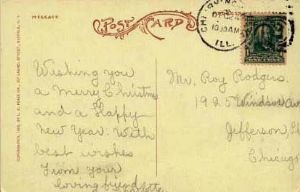 MESSAGE
POST CARD
CHICAGO
10 30 AM
ILL.
Wishing you
a Merry Christmas
and a Happy
New Year. With
best wishes
From your
loving friend
Mr. Roy Rodgers.
1925 Windsor Ave
Jefferson
Chicago